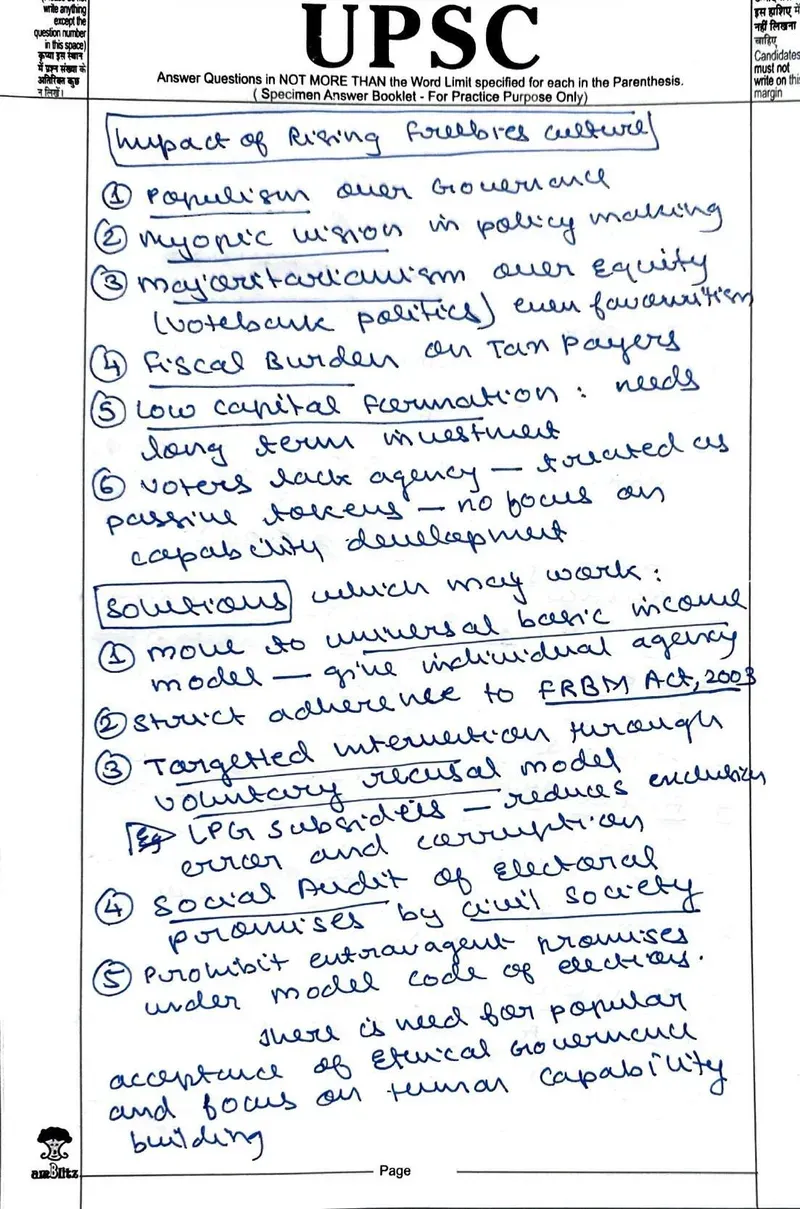 write anything
except the
question number
in this space)
कृपया इस स्थान
में प्रश्न संख्या के
अतिरिक्त कुछ
न लिखें।
UPSC
Answer Questions in NOT MORE THAN the Word Limit specified for each in the Parenthesis.
( Specimen Answer Booklet - For Practice Purpose Only)
इस हाशिए में
नहीं लिखना
चाहिए
Candidates
must not
write on this
margin
Impact of Rising Freebies culture
① Populism over Governance
② Myopic vision in policy making
③ Majoritarianism over Equity
(votebank politics) even favouritism
④ Fiscal Burden on Tax payers
⑤ Low capital formation : needs
long term investment
⑥ voters lack agency — treated as
passive tokens — no focus on
capability development
Solutions which may work :
① move to universal basic income
model — give individual agency
② strict adherence to FRBM Act, 2003
③ Targetted intervention through
voluntary recusal model
Eg LPG subsidies — reduces exclusion
error and corruption
④ Social Audit of Electoral
promises by civil society
⑤ Prohibit extravagent promises
under model code of elections.
There is need for popular
acceptance of Ethical Governance
and focus on human capability
building
Page